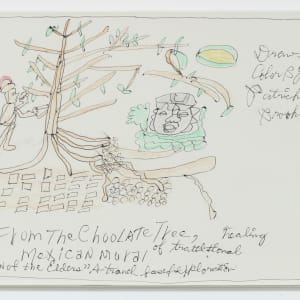 Drawn
Color By
Patrick
From The Chocolate Tree,
healing
Mexican Mural of traditional
of the Elders" A travel based exploration